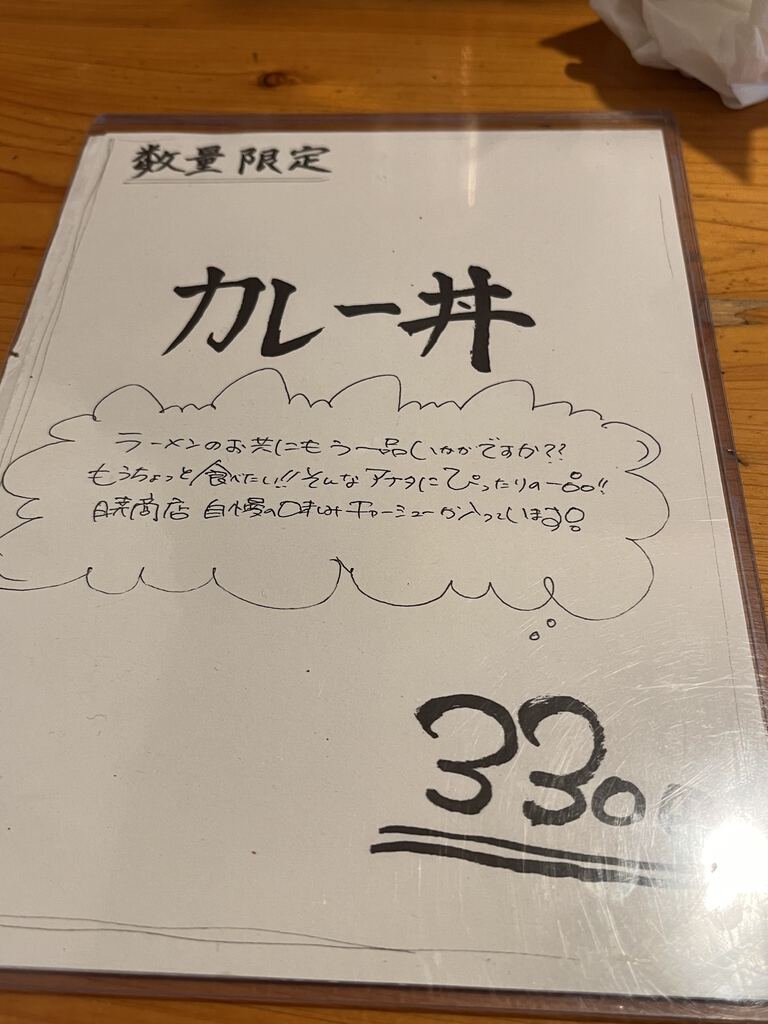 数量限定
カレー丼
ラーメンのお共にもう一品いかがですか??
もうちょっと食べたい!!そんなアナタにぴったりの一品!!
商店 自慢の チャーシューが入っています
330